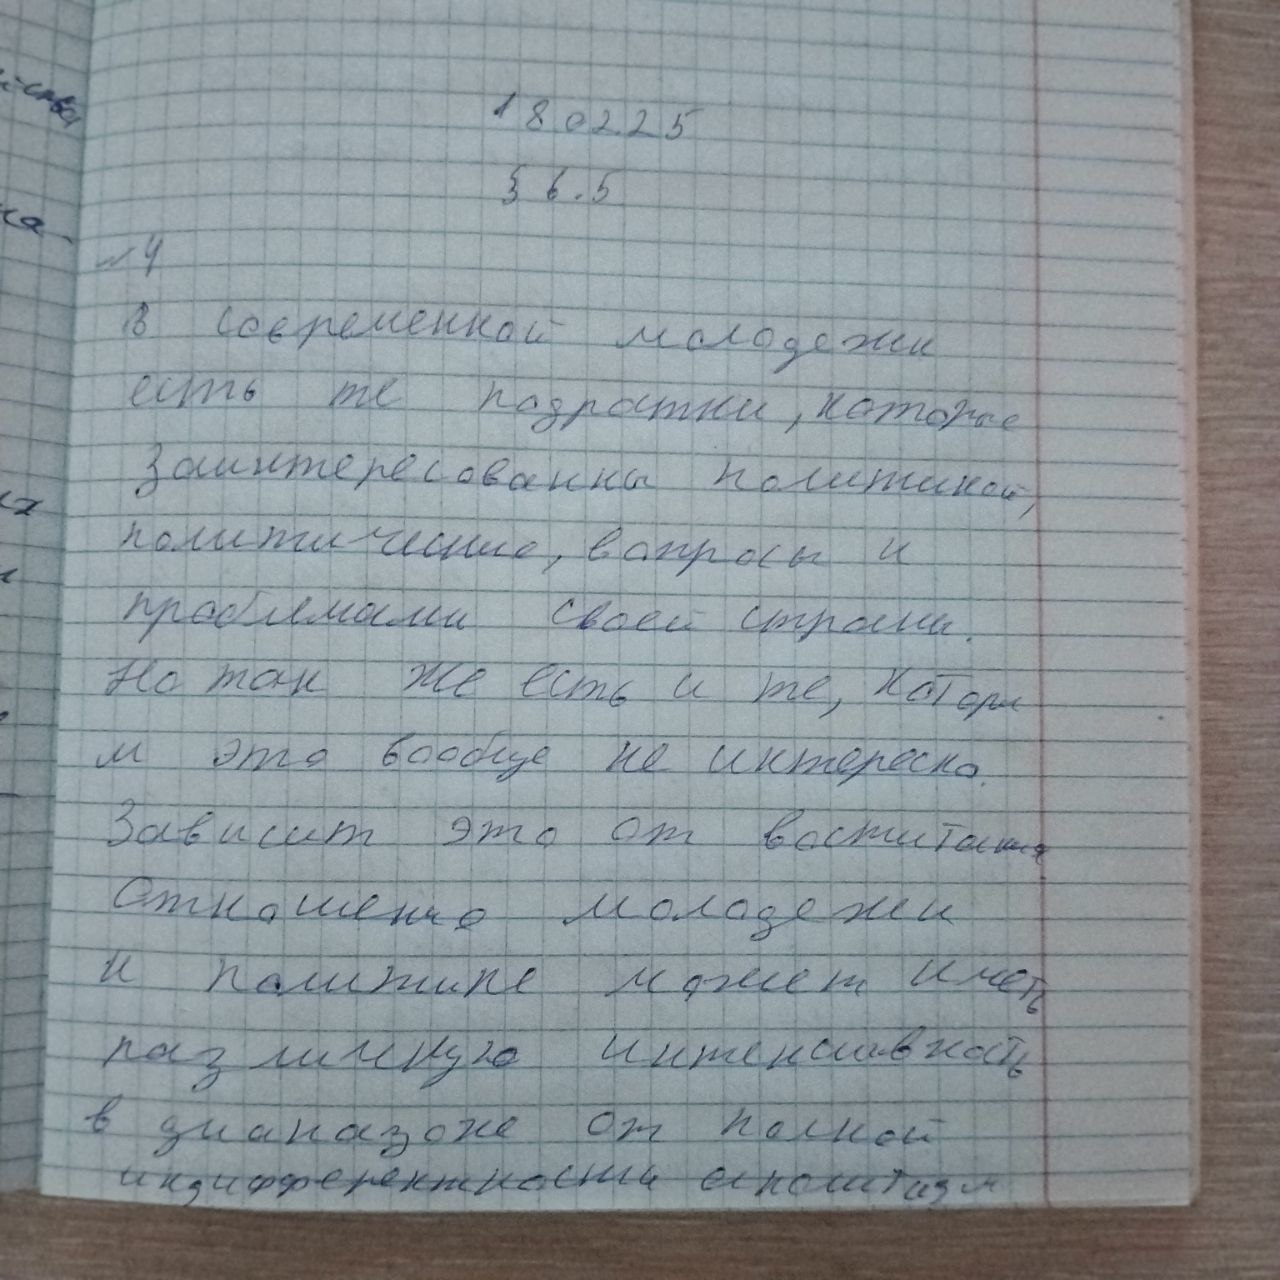 180225
§ 6.5
№4
В современной молодежи
есть те подростки, которые
заинтересованны политикой,
политические, вопросы и
проблемами своей страны.
Но так же есть и те, котори
м это вообще не интересно.
Зависит это от воспитания
Отношение молодежи
к политике может иметь
различную интенсивность
в диапазоне от полной
индифферентности аполитизм